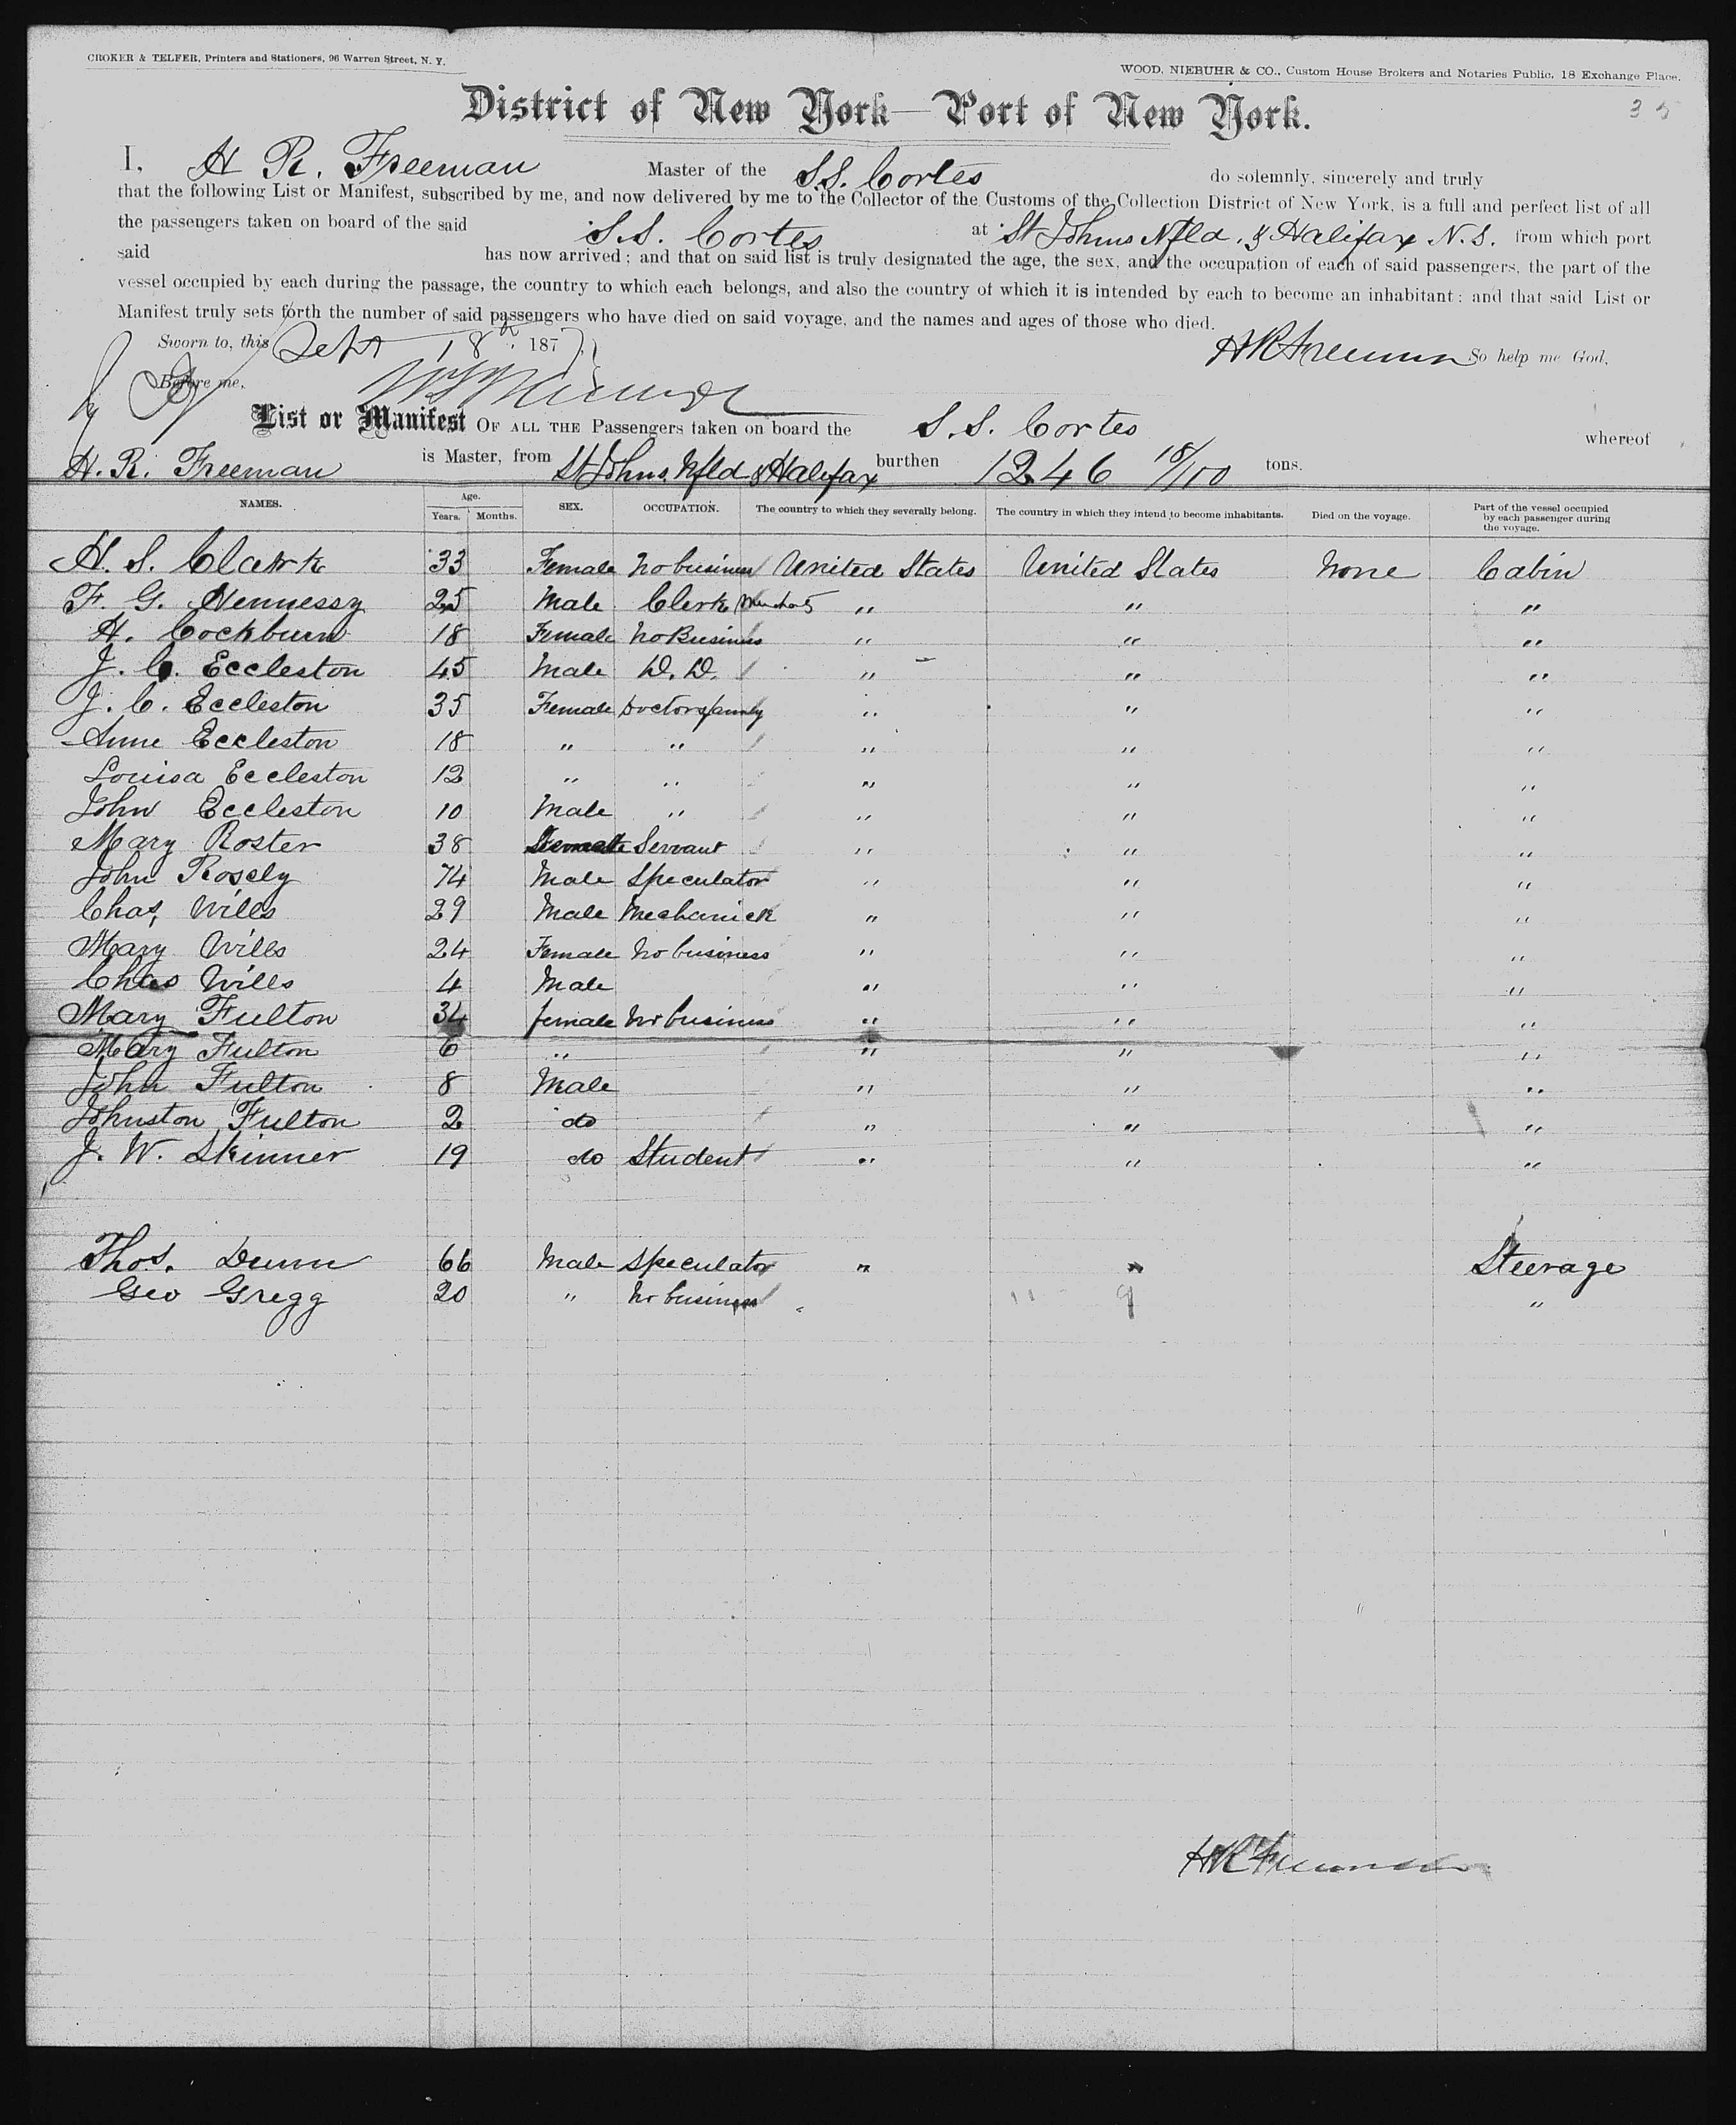 CROKER & TELFER, Printers and Stationers, 96 Warren Street, N. Y.
WOOD, NIEBUHR & CO., Custom House Brokers and Notaries Public, 18 Exchange Place.
District of New York—Port of New York.
I, H R. Freeman Master of the S.S. Cortes do solemnly, sincerely and truly
that the following List or Manifest, subscribed by me, and now delivered by me to the Collector of the Customs of the Collection District of New York, is a full and perfect list of all
the passengers taken on board of the said S.S. Cortes at St Johns Nfld. & Halifax N.S. from which port
said has now arrived; and that on said list is truly designated the age, the sex, and the occupation of each of said passengers, the part of the
vessel occupied by each during the passage, the country to which each belongs, and also the country of which it is intended by each to become an inhabitant: and that said List or
Manifest truly sets forth the number of said passengers who have died on said voyage, and the names and ages of those who died.
Sworn to, this Sept 18th 187 HR Freeman So help me God.
Before me,
List or Manifest OF ALL THE Passengers taken on board the S.S. Cortes whereof
H. R. Freeman is Master, from St Johns Nfld & Halifax burthen 1246 18/100 tons.
NAMES. Age. Years. Months. SEX. OCCUPATION. The country to which they severally belong. The country in which they intend to become inhabitants. Died on the voyage. Part of the vessel occupied by each passenger during the voyage.
H. S. Clark 33 Female No business United States United States None Cabin
F. G. Hennessy 25 Male Clerk " " "
H. Cockburn 18 Female No Business " " "
J. C. Eccleston 45 Male D. D. " " "
J. C. Eccleston 35 Female Doctors family " " "
Anne Eccleston 18 " " " " "
Louisa Eccleston 12 " " " " "
John Eccleston 10 Male " " " "
Mary Roster 38 Female Servant " " "
John Rosely 74 Male Speculator " " "
Chas, Wills 29 Male Mechanick " " "
Mary Wills 24 Female No business " " "
Chas Wills 4 Male " " "
Mary Fulton 34 female No business " " "
Mary Fulton 6 " " " "
John Fulton 8 Male " " "
Johnston Fulton 2 do " " "
J. W. Skinner 19 do Student " " "
Thos. Dunn 66 Male Speculator " " Steerage
Geo Gregg 20 " No business " " "
HR Freeman